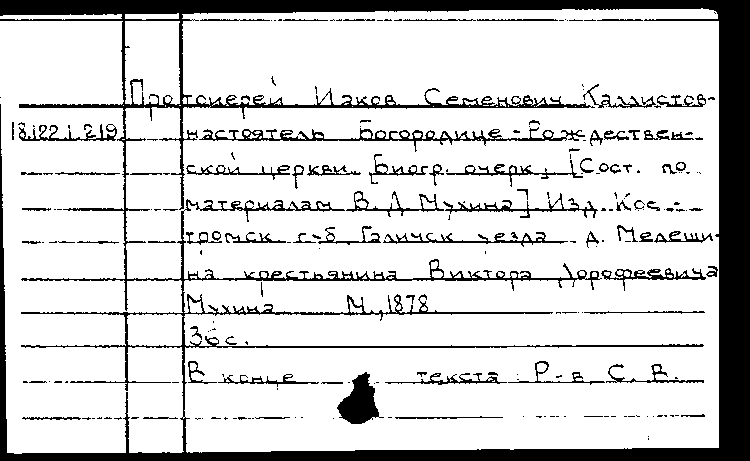 Протоиерей Иаков Семенович Каллистов-
18.122.1.219 настоятель Богородице-Рождествен-
ской церкви. [Биогр. очерк] [Сост. по
материалам В. Д. Мухина] Изд. Кос-
тромск. г-б. Галичск. уезда д. Мелеши-
на крестьянина Виктора Дорофеевича
Мухина М., 1878.
36 с.
В конце текста Р-в, С. В.